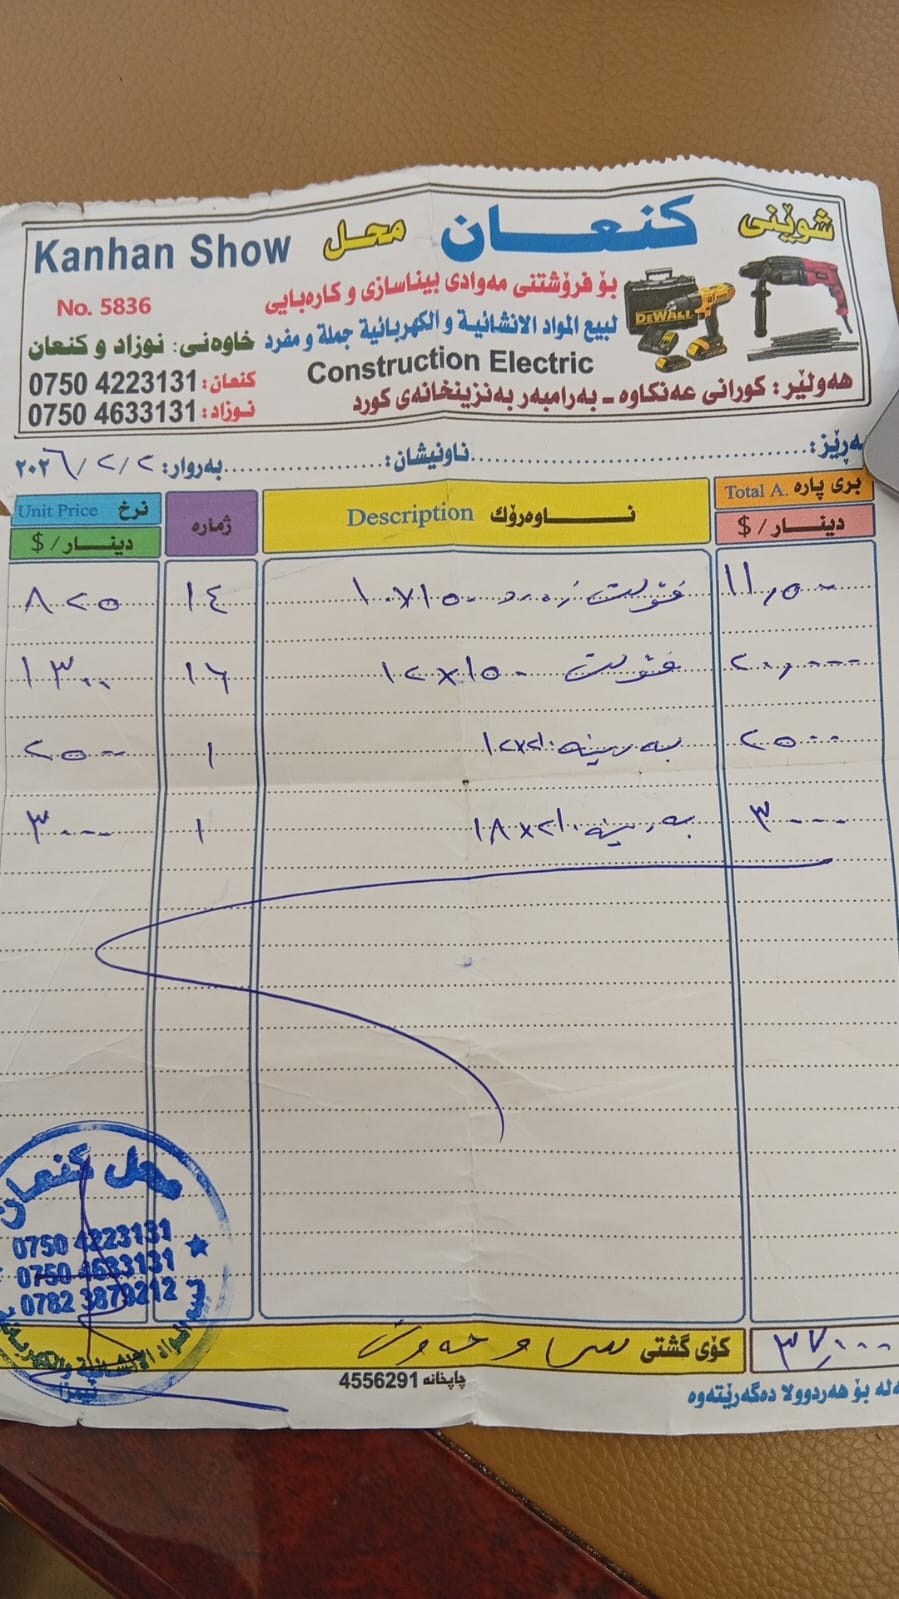 شوێنی کنعـــــان محـل
Kanhan Show
بۆ فرۆشتنی مەوادی بیناسازی و کارەبایی
No. 5836
لبيع المواد الانشائيـة و الكهربائية جملة و مفرد
خاوەنی: نوزاد و کنعان
DEWALT
Construction Electric
کنعان: 0750 4223131
هەولێر: کورانی عەنکاوە ـ بەرامبەر بەنزینخانەی کورد
نـوزاد: 0750 4633131
ەڕێز:.................................... ناونیشان:.................... بەروار: ٢٠٢٦/٢/٢
بری پارە Total A. نـــــاوەرۆك Description ژمارە نرخ Unit Price
دینـــار / $ دینـــار / $
١١,٥٠٠ فۆلت زەرد ١٠×١٥٠ ١٤ ٨٢٥
٢٠,٠٠٠ فۆلت ١٢×١٥٠ ١٦ ١٣٠٠
٢٥٠٠ بەرینە ١٢×٢١٠ ١ ٢٥٠٠
٣٠٠٠ بەرینە ١٨×٢١٠ ١ ٣٠٠٠
محل كنعان
0750 4223131
0750 4633131
0782 3879212
لبيع المواد الانشائية والكهربائية
٣٧,٠٠٠ کۆی گشتی سی و حەوت
چاپخانە 4556291
ەلە بۆ هەردوولا دەگەڕێتەوە